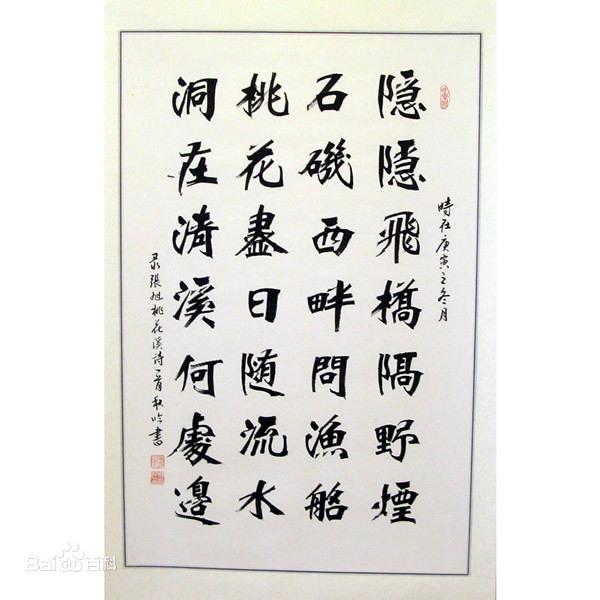 時在庚寅之冬月
隐隐飛橋隔野煙
石磯西畔問漁船
桃花盡日随流水
洞在清溪何處邊
录張旭桃花溪詩一首秋吟書
Bai du 百科